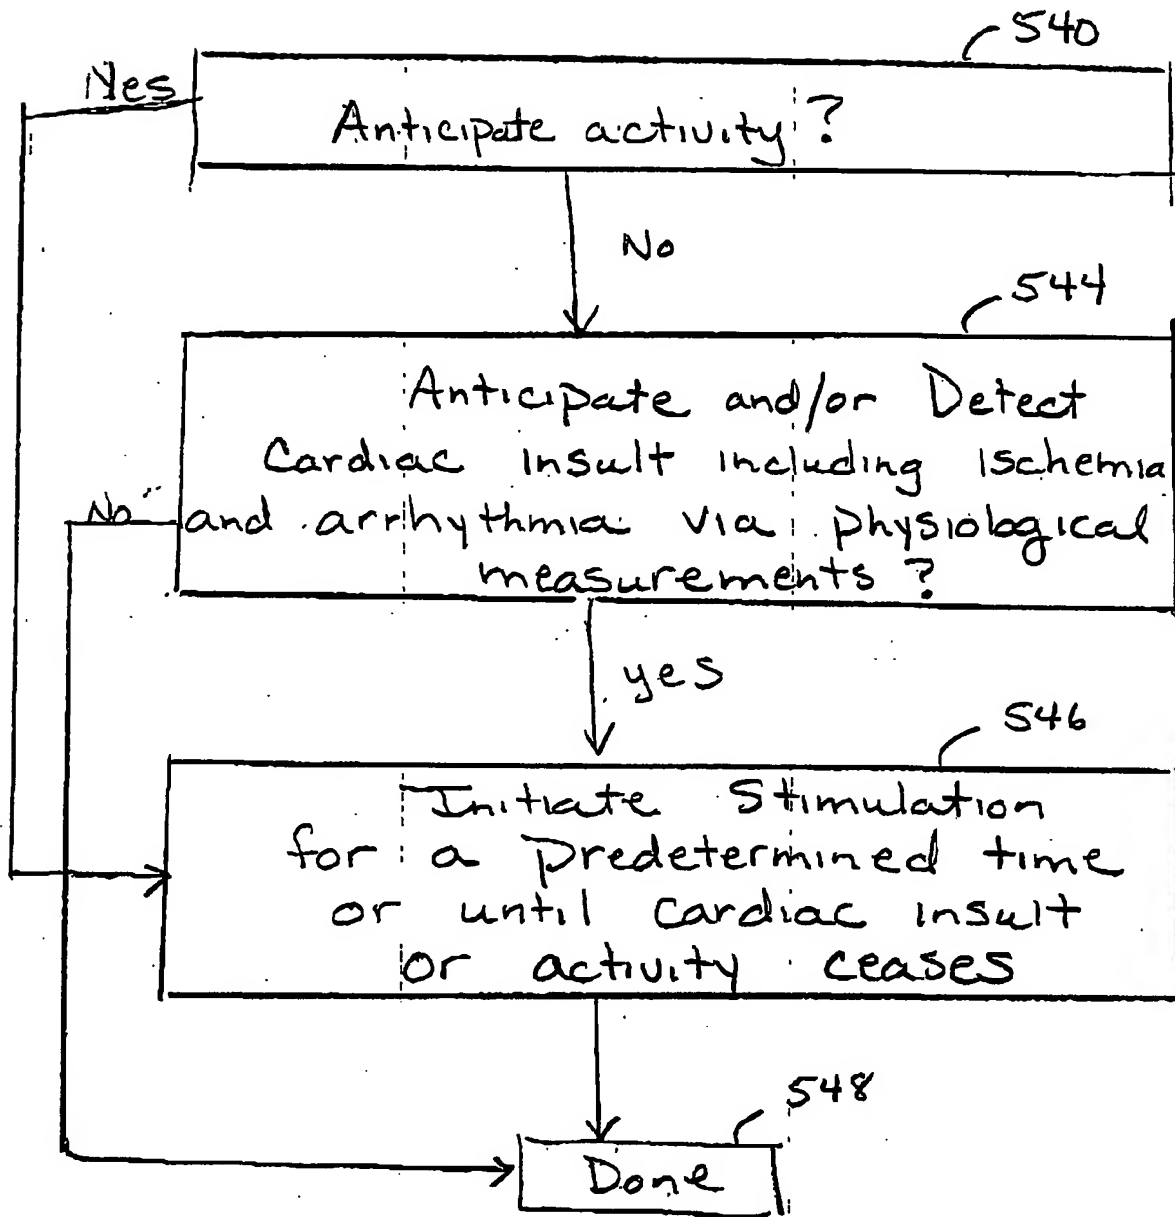 540
Yes
Anticipate activity?
No
544
Anticipate and/or Detect
Cardiac insult including ischemia
No
and arrhythmia via physiological
measurements?
yes
546
Initiate Stimulation
for a predetermined time
or until cardiac insult
or activity ceases
548
Done